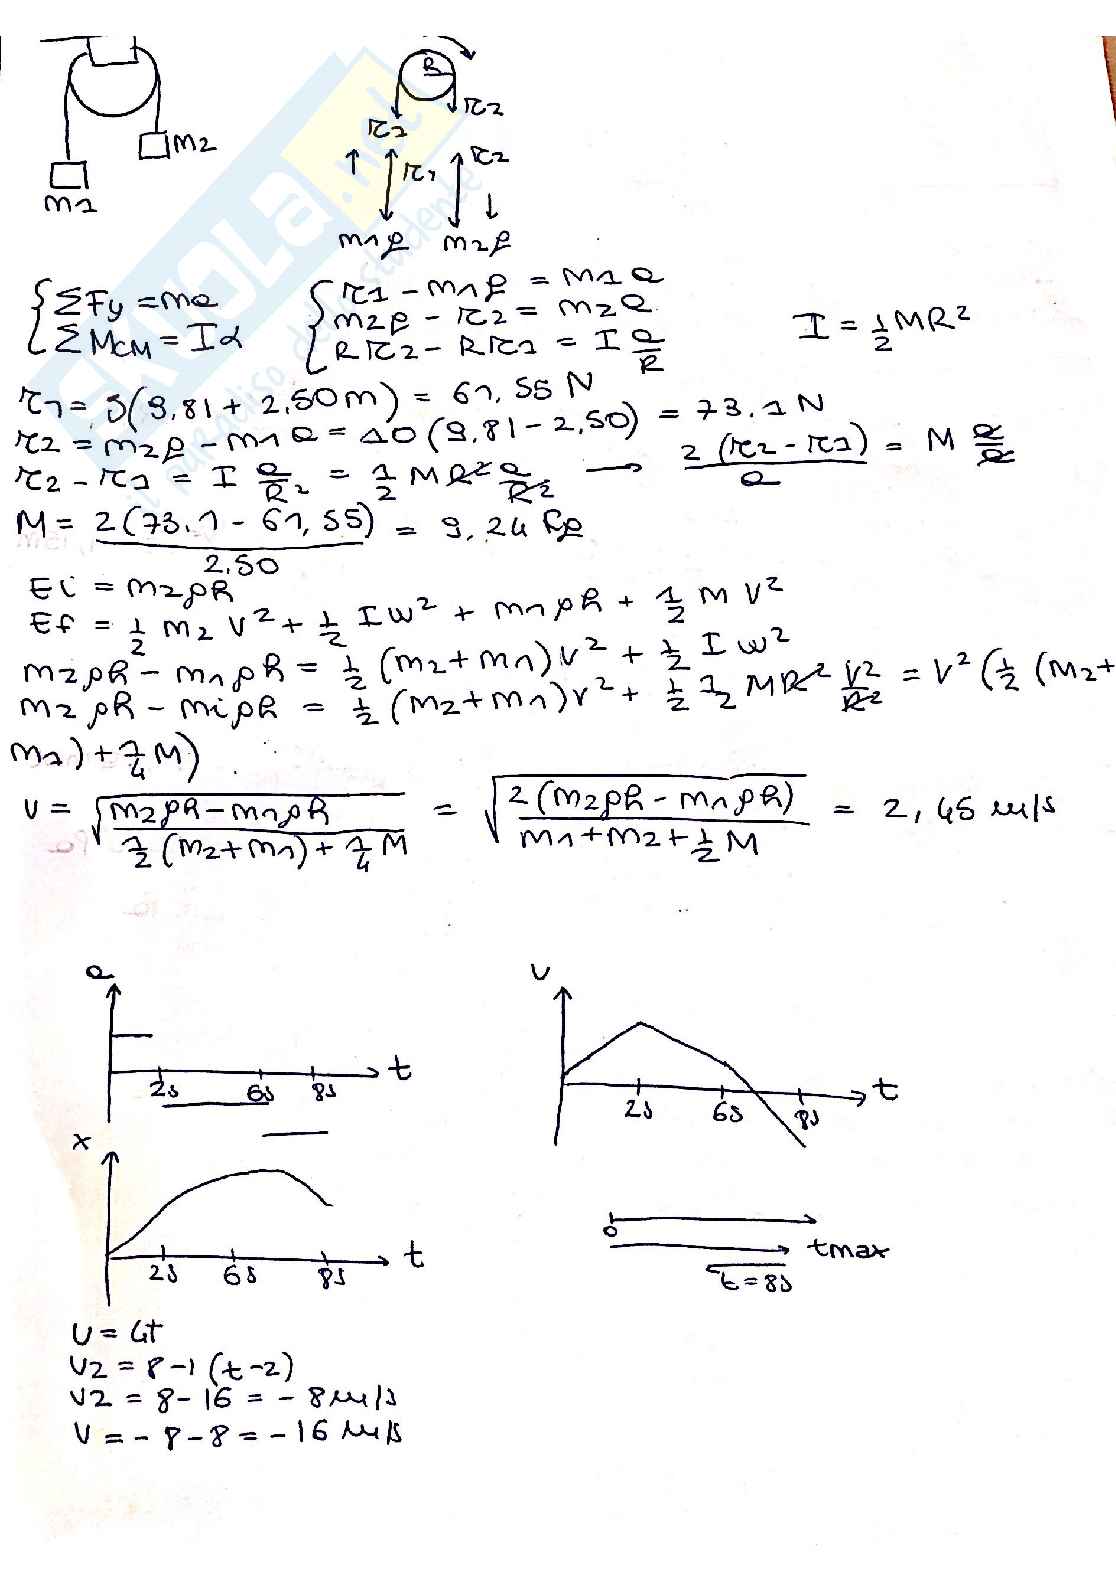 R
τ2
m2
τ2
m1
τ1
τ2
m1g
m2g
{ΣFy = ma
ΣMCM = Iα
{τ1 - m1g = m1a
m2g - τ2 = m2a
Rτ2 - Rτ1 = I a/R
I = 1/2 MR²
τ1 = 5(9,81 + 2,50m) = 61,55 N
τ2 = m2g - m1a = 10(9,81 - 2,50) = 73.1N
τ2 - τ1 = I a/R² = 1/2 MR² a/R² → 2(τ2 - τ1)/a = M a/a
M = 2(73.1 - 61,55)/2.50 = 9,24 kg
Ei = m2gh
Ef = 1/2 m2 V² + 1/2 Iω² + m1gh + 1/2 M V²
m2gh - m1gh = 1/2 (m2+m1)V² + 1/2 I ω²
m2gh - migh = 1/2 (m2+m1)v² + 1/2 1/2 MR² V²/R² = V² (1/2 (m2+
m1) + 1/4 M)
V = √(m2gh - m1gh / 1/2 (m2+m1) + 1/4 M) = √(2(m2gh - m1gh) / m1+m2+1/2 M) = 2,45 m/s
a
t
2s 6s 8s
V
t
2s 6s 8s
x
t
2s 6s 8s
0
tmax
t=8s
V = 4t
V2 = 8-1(t-2)
V2 = 8-16 = -8m/s
V = -8-8 = -16 m/s
SKUOLA.net
il paradiso dello studente